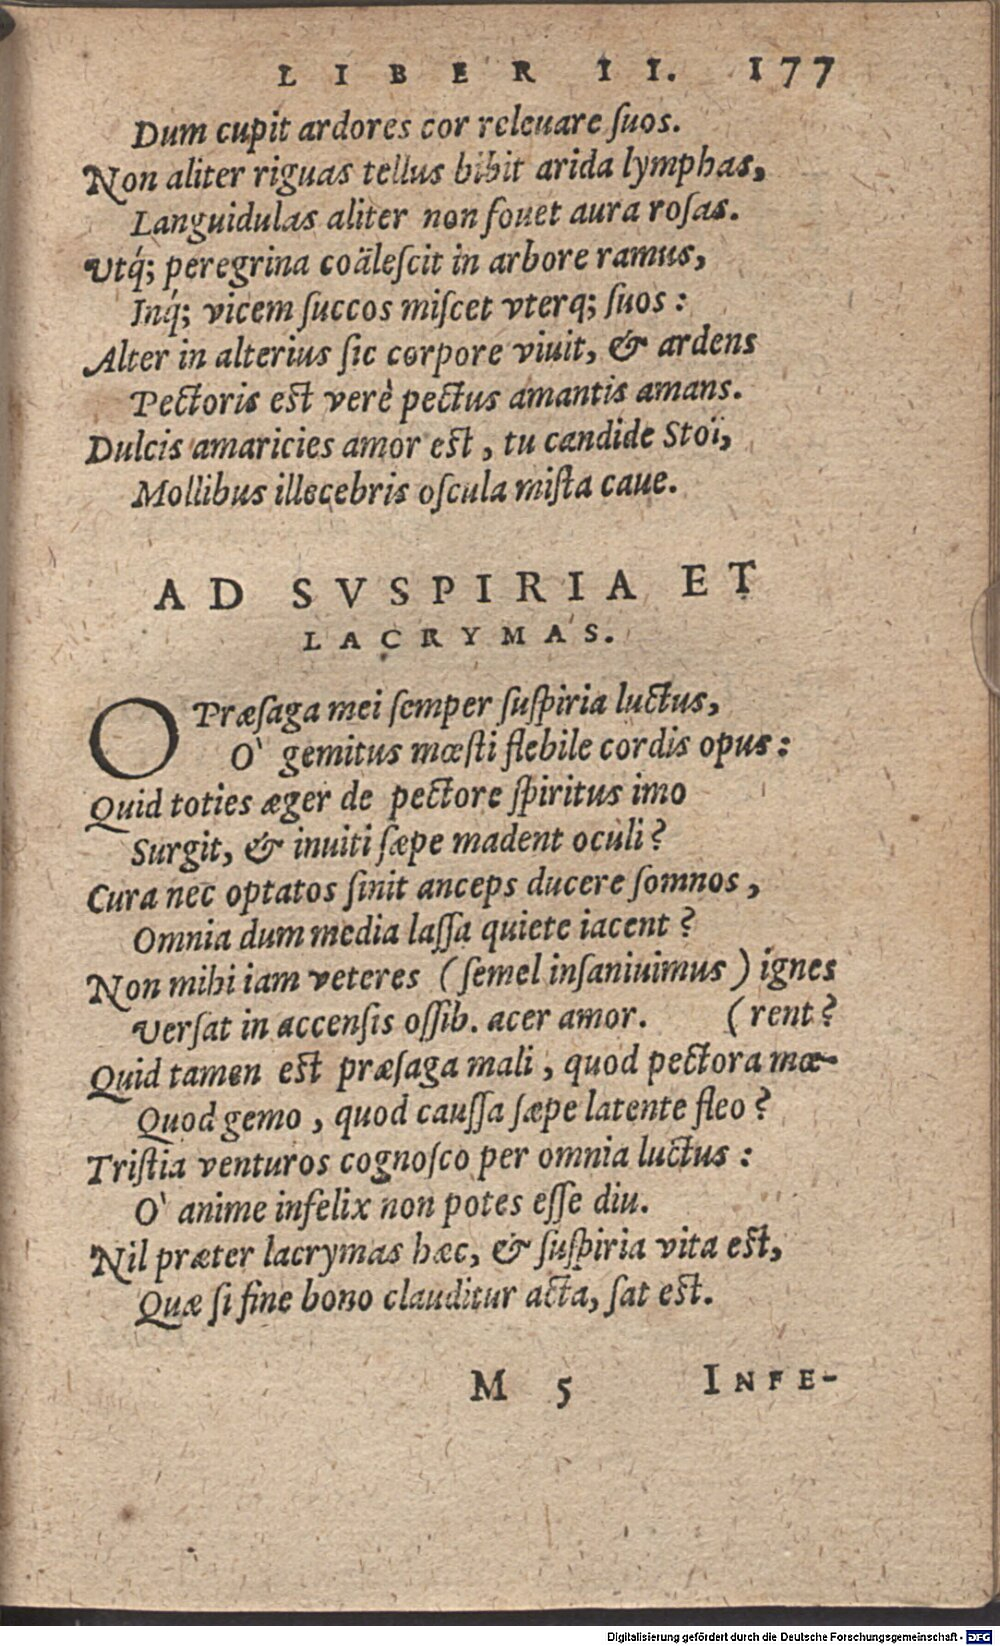 LIBER II. 177
Dum cupit ardores cor releuare ſuos.
Non aliter riguas tellus bibit arida lymphas,
Languidulas aliter non fouet aura roſas.
Vtq́; peregrina coäleſcit in arbore ramus,
Inq́; vicem ſuccos miſcet vterq; ſuos:
Alter in alterius ſic corpore viuit, & ardens
Pectoris est verè pectus amantis amans.
Dulcis amaricies amor est, tu candide Stoï,
Mollibus illecebris oſcula miſta caue.
AD SVSPIRIA ET
LACRYMAS.
O Præſaga mei ſemper ſuſpiria luctus,
O` gemitus mœſti flebile cordis opus:
Quid toties æger de pectore ſpiritus imo
Surgit, & inuiti ſæpe madent oculi?
Cura nec optatos ſinit anceps ducere ſomnos,
Omnia dum media laſſa quiete iacent?
Non mihi iam veteres (ſemel inſaniuimus) ignes
Verſat in accenſis oſſib. acer amor. (rent?
Quid tamen est præſaga mali, quod pectora mœ-
Quod gemo, quod cauſſa ſæpe latente fleo?
Triſtia venturos cognoſco per omnia luctus:
O` anime infelix non potes eſſe diu.
Nil præter lacrymas hæc, & ſuſpiria vita est,
Quæ ſi fine bono clauditur acta, ſat est.
M 5 INFE-
Digitalisierung gefördert durch die Deutsche Forschungsgemeinschaft - DFG